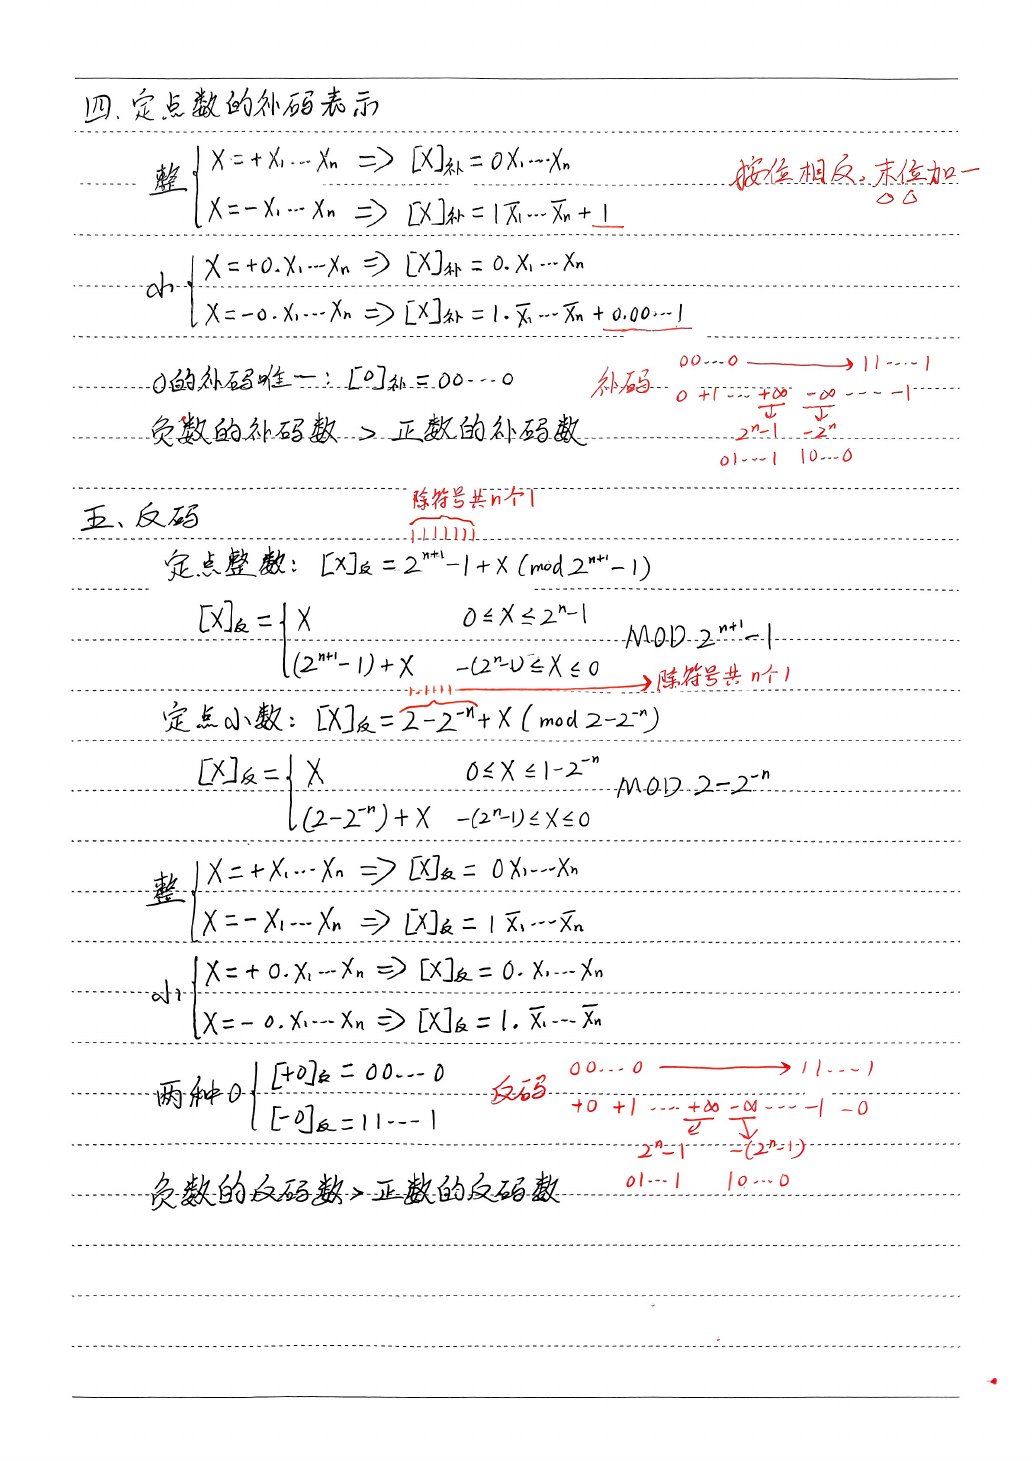 四、定点数的补码表示
整 { X=+X₁…Xₙ ⇒ [X]补=0X₁…Xₙ
按位相反,末位加一
X=-X₁…Xₙ ⇒ [X]补=1X̄₁…X̄ₙ+1
小 { X=+0.X₁…Xₙ ⇒ [X]补=0.X₁…Xₙ
X=-0.X₁…Xₙ ⇒ [X]补=1.X̄₁…X̄ₙ+0.00…1
0的补码唯一:[0]补=00…0
补码 00…0 → 11…1
0 +1 … +∞ -∞ … -1
2ⁿ-1 -2ⁿ
01…1 10…0
负数的补码数 > 正数的补码数
五、反码
除符号共n个1
1111111
定点整数:[X]反=2ⁿ⁺¹-1+X (mod 2ⁿ⁺¹-1)
[X]反= { X 0≤X≤2ⁿ-1
(2ⁿ⁺¹-1)+X -(2ⁿ-1)≤X≤0
MOD 2ⁿ⁺¹-1
1.11111 → 除符号共n个1
定点小数:[X]反=2-2⁻ⁿ+X (mod 2-2⁻ⁿ)
[X]反= { X 0≤X≤1-2⁻ⁿ
(2-2⁻ⁿ)+X -(2ⁿ-1)≤X≤0
MOD 2-2⁻ⁿ
整 { X=+X₁…Xₙ ⇒ [X]反=0X₁…Xₙ
X=-X₁…Xₙ ⇒ [X]反=1X̄₁…X̄ₙ
小 { X=+0.X₁…Xₙ ⇒ [X]反=0.X₁…Xₙ
X=-0.X₁…Xₙ ⇒ [X]反=1.X̄₁…X̄ₙ
两种0 { [+0]反=00…0
[-0]反=11…1
反码 00…0 → 11…1
+0 +1 … +∞ -∞ … -1 -0
2ⁿ-1 -(2ⁿ-1)
01…1 10…0
负数的反码数>正数的反码数